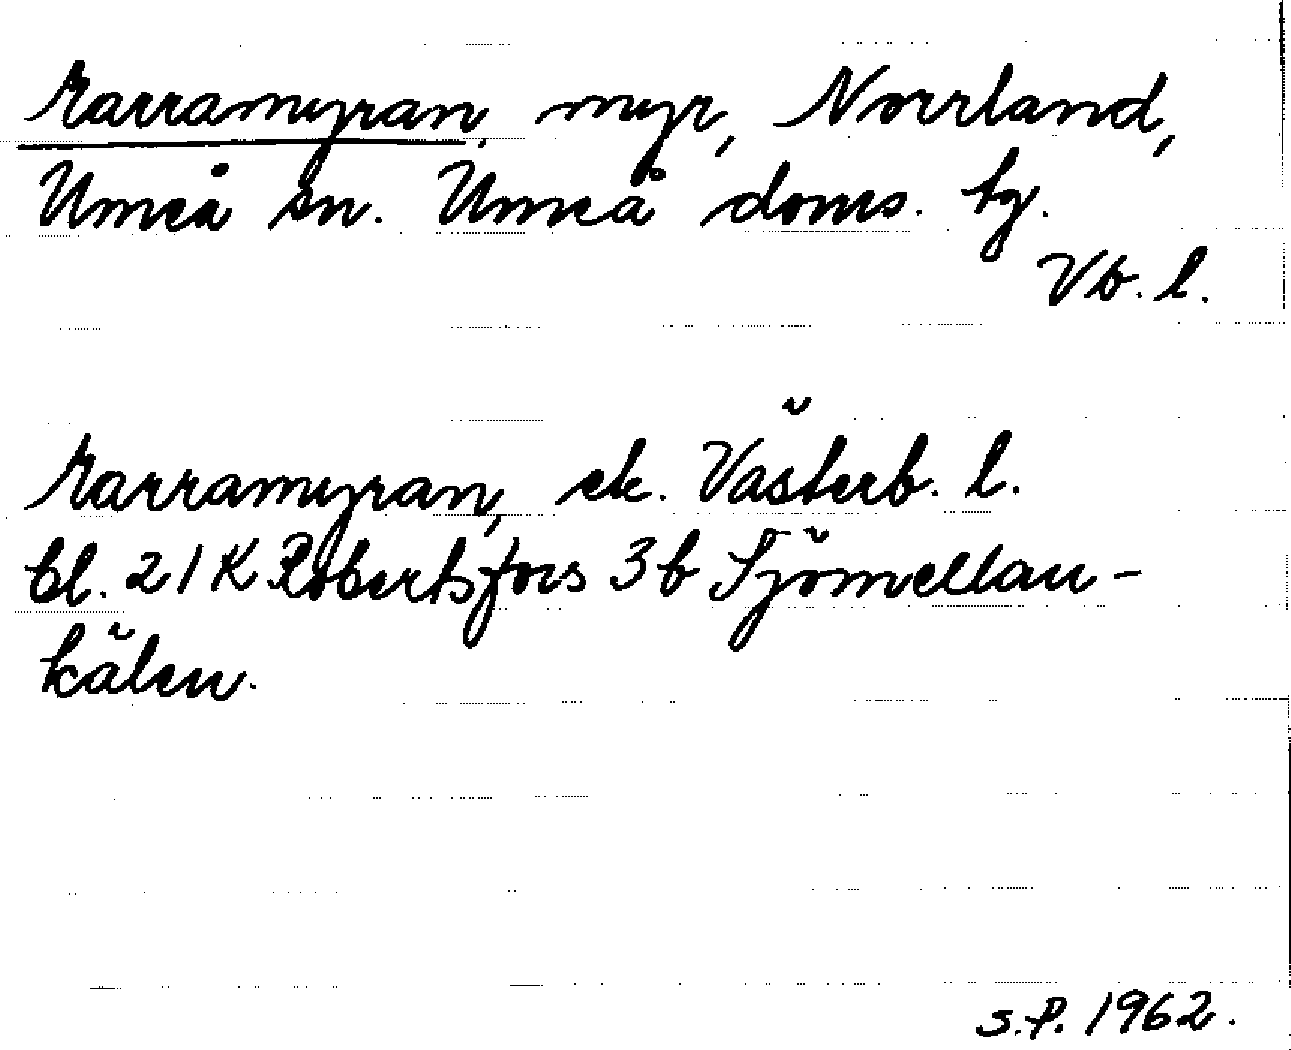 Karramyran, myr, Norrland,
Umeå sn. Umeå doms. tg.
Vb. l.
Karramyran, ek. Västerb. l.
bl. 21 K Robertsfors 3 b Sjömellan-
kälen.
S.P. 1962.